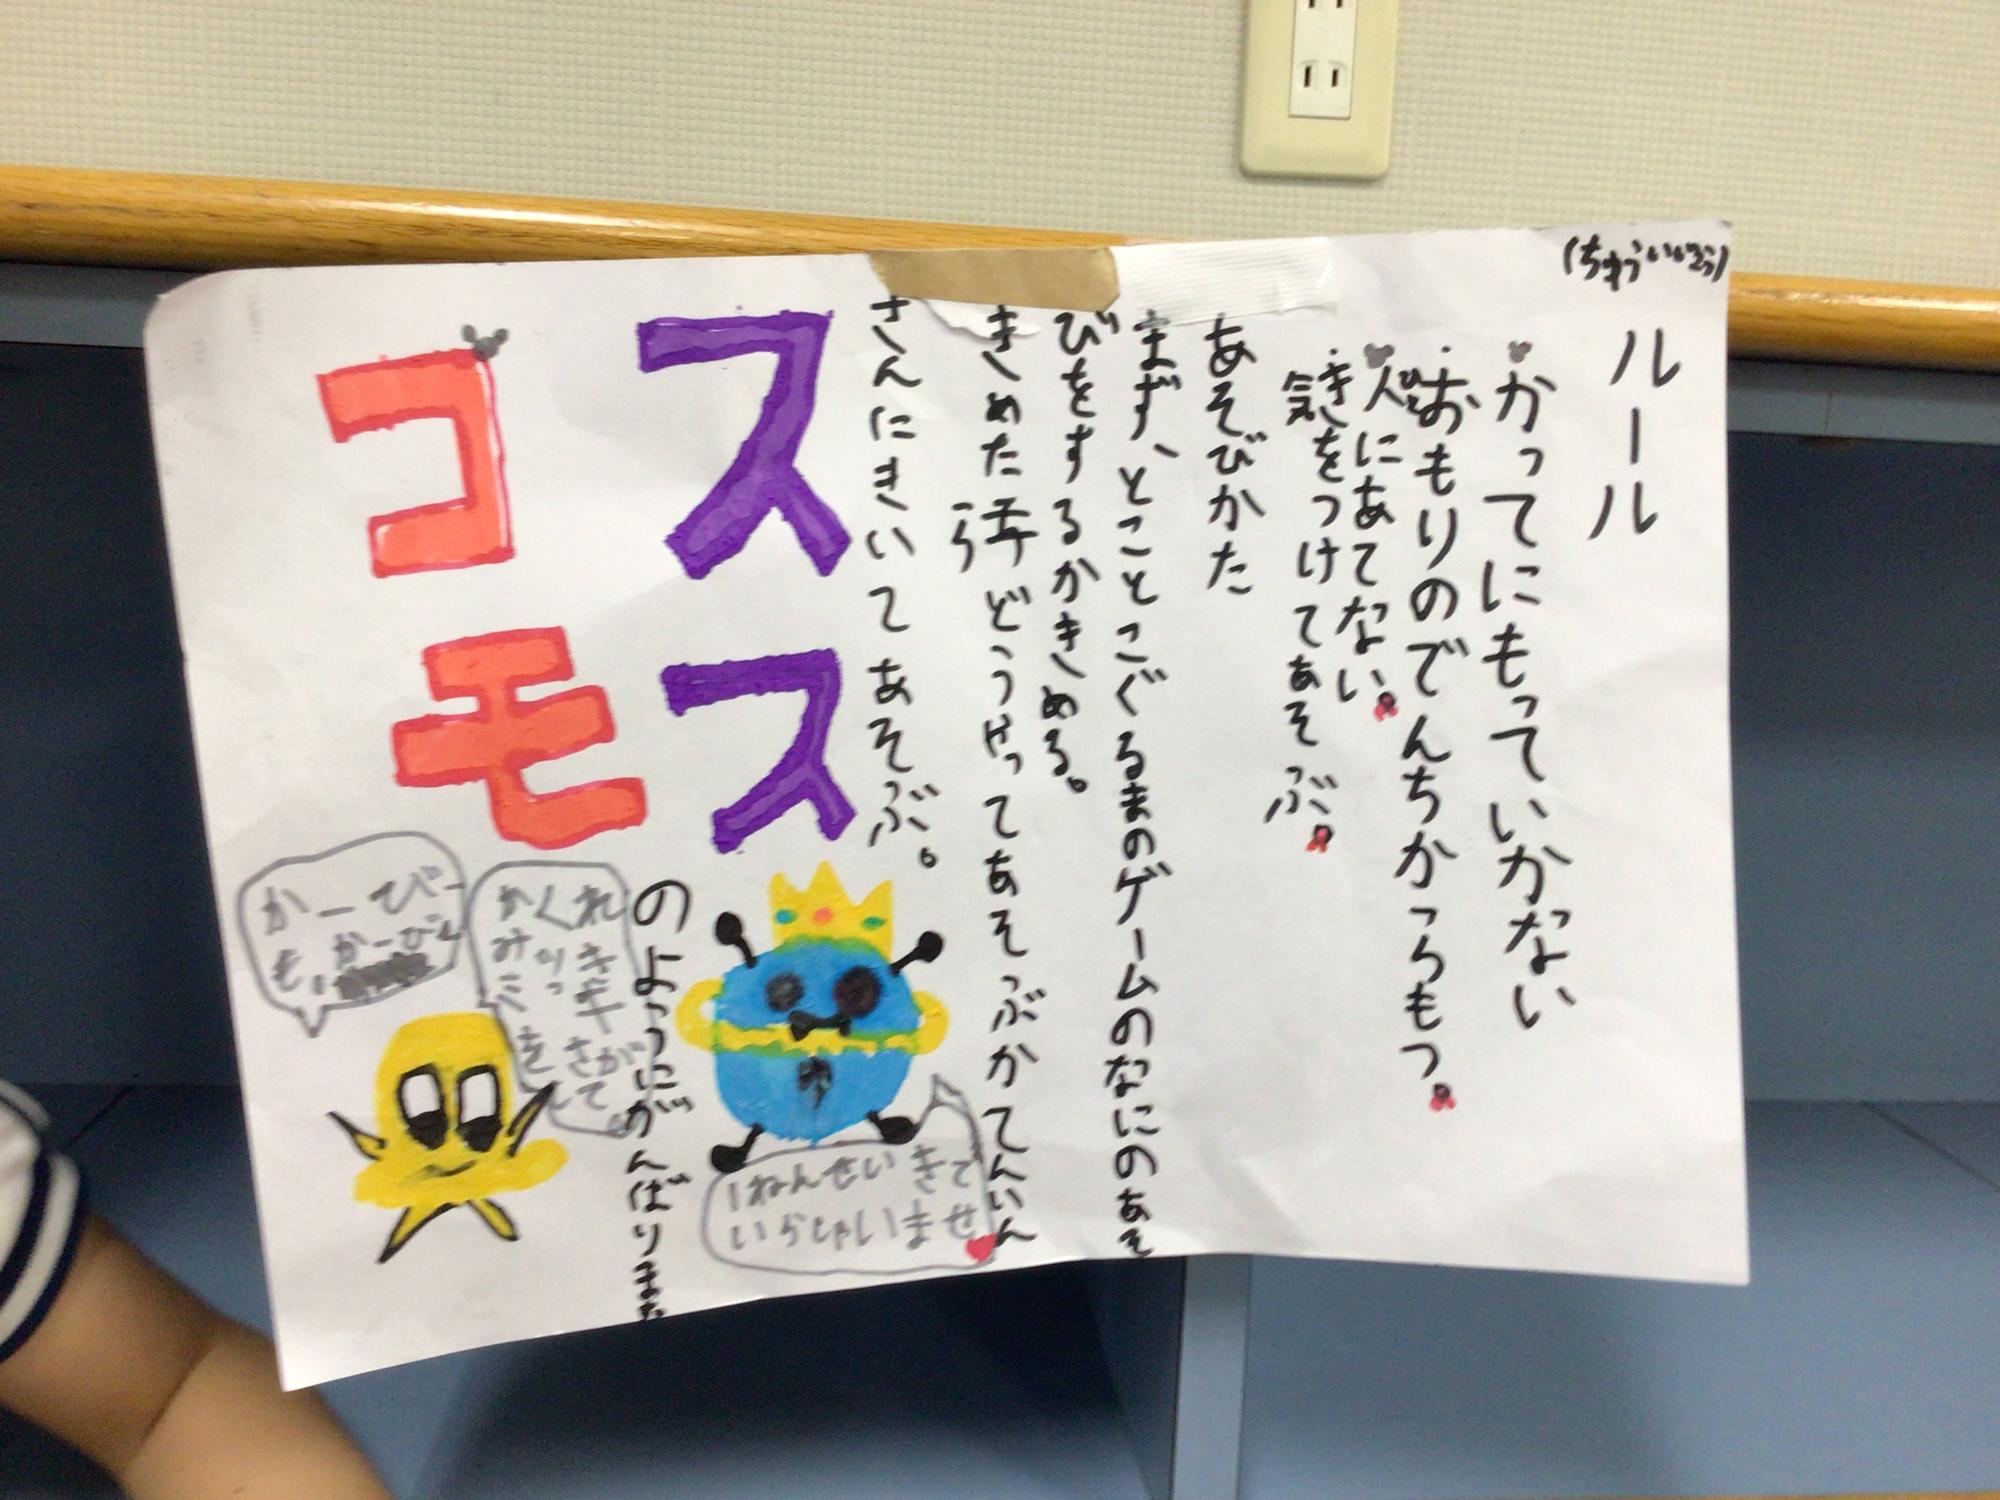 (ちゅういじこう)
ルール
かってにもっていかない
・おもりのでんちかっらもつ
人にあてない
・気をつけてあそぶ
あそびかた
まず、とことこぐるまのゲームのなにのあそ
びをするかきめる。
きめた
らどうやってあそぶかてんいん
さんにきいてあそぶ。
コスモス
のようにがんばります
1ねんせいきて
いらしゃいませ
かくれ
ミッキー
さがして
かーびー
も、かーびぃ